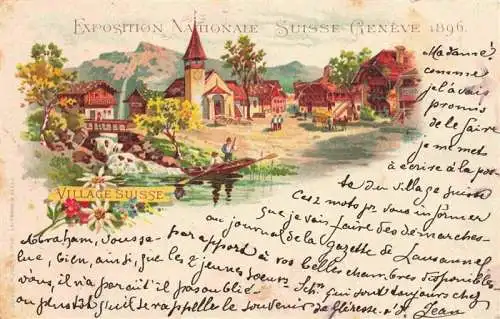 EXPOSITION NATIONALE SUISSE GENÈVE 1896.
Madame
comme
je l'avais
promis
de le faire
je me mets
à écrire à la pos-
te du village suisse
VILLAGE SUISSE
Ces 2 mots pr vous informer
que je vais faire des démarches
au journal de la gazette de Lausanne
par rapport à vos belles chambres disponibles
Abraham,
lue, bien, ainsi, que les 2 jeunes soeurs qui sont toujours chez
vous, il n'a paraît il pas oublié
au plustôt qu'il se rappelle le souvenir de à St. Jean